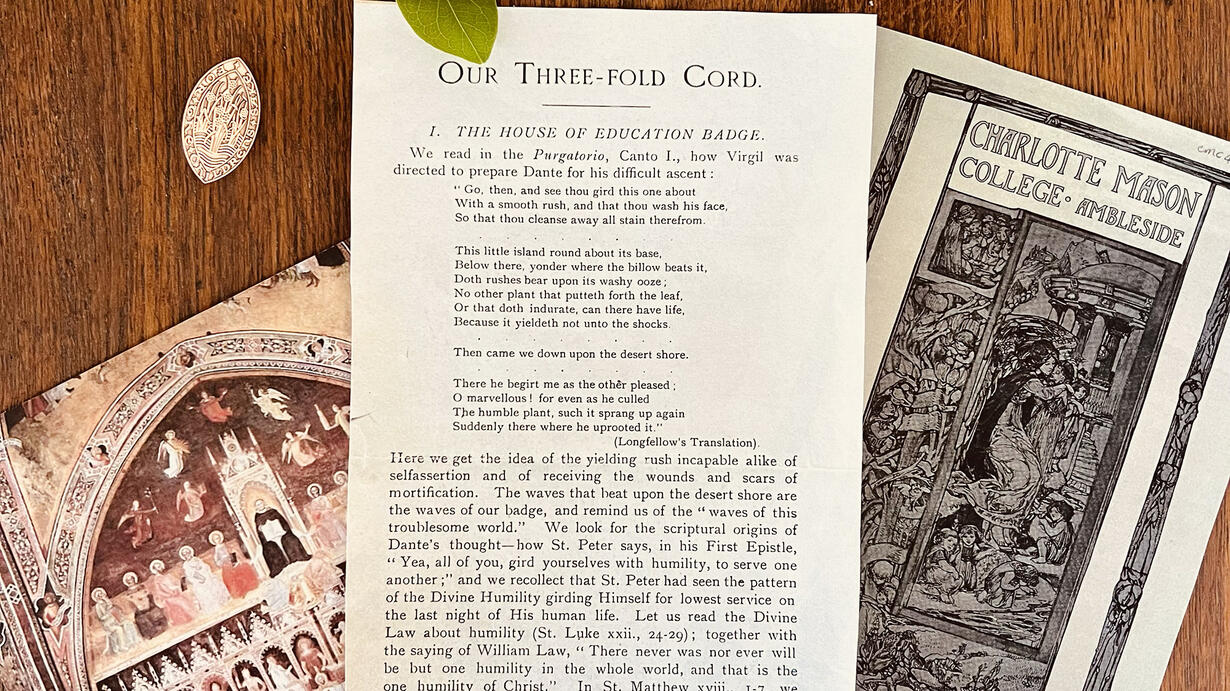 OUR THREE-FOLD CORD.
I. THE HOUSE OF EDUCATION BADGE.
We read in the Purgatorio, Canto I., how Virgil was
directed to prepare Dante for his difficult ascent :
" Go, then, and see thou gird this one about
With a smooth rush, and that thou wash his face,
So that thou cleanse away all stain therefrom.
. . . . . . .
This little island round about its base,
Below there, yonder where the billow beats it,
Doth rushes bear upon its washy ooze ;
No other plant that putteth forth the leaf,
Or that doth indurate, can there have life,
Because it yieldeth not unto the shocks.
. . . . . . .
Then came we down upon the desert shore.
. . . . . . .
There he begirt me as the other pleased ;
O marvellous ! for even as he culled
The humble plant, such it sprang up again
Suddenly there where he uprooted it."
(Longfellow's Translation).
Here we get the idea of the yielding rush incapable alike of
selfassertion and of receiving the wounds and scars of
mortification. The waves that beat upon the desert shore are
the waves of our badge, and remind us of the " waves of this
troublesome world." We look for the scriptural origins of
Dante's thought—how St. Peter says, in his First Epistle,
" Yea, all of you, gird yourselves with humility, to serve one
another ;" and we recollect that St. Peter had seen the pattern
of the Divine Humility girding Himself for lowest service on
the last night of His human life. Let us read the Divine
Law about humility (St. Luke xxii., 24-29) ; together with
the saying of William Law, " There never was nor ever will
be but one humility in the whole world, and that is the
one humility of Christ." In St. Matthew xviii., 1-7, we
CHARLOTTE MASON
COLLEGE · AMBLESIDE